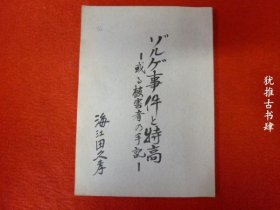 ゾルゲ事件と特高
ー或る被害者の手記ー
海江田久孝
犹推古书肆